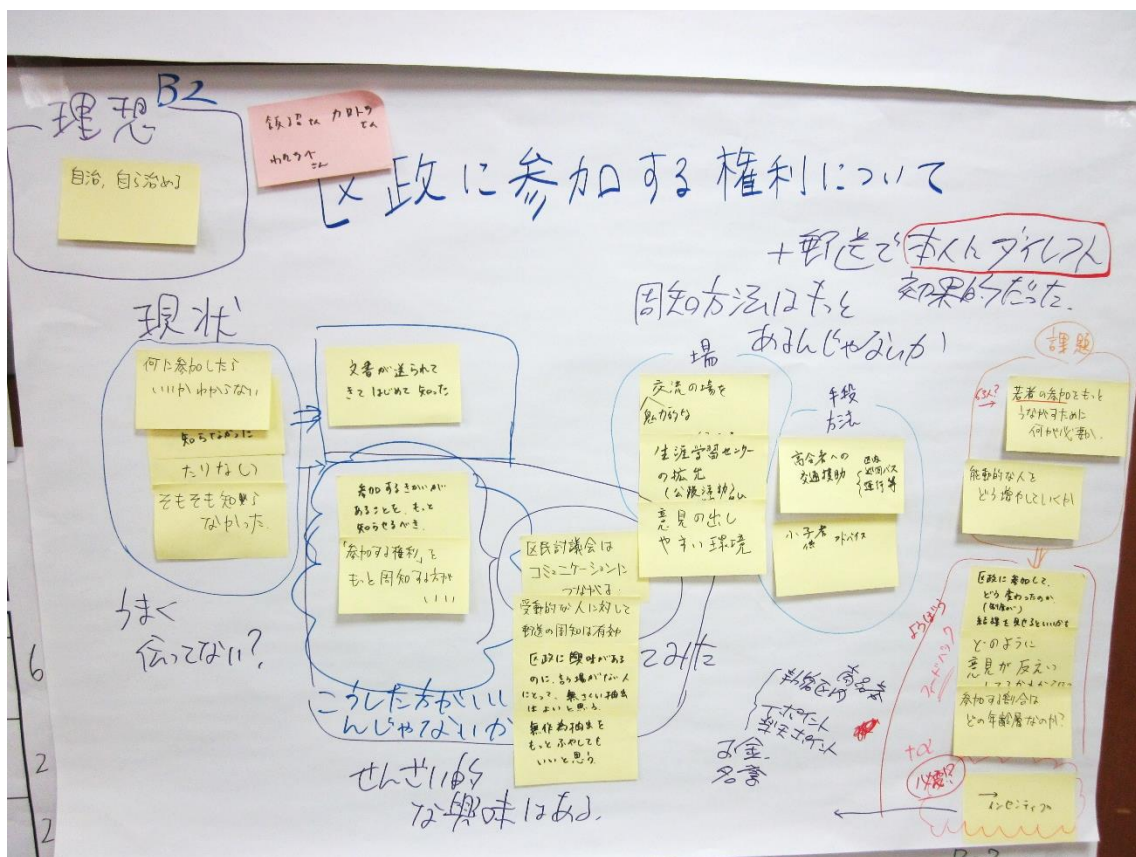 B2
理想
自治，自ら治める
区政に参加する権利について
+郵送で本人にダイレクト
効果的だった．
周知の方法はもっと
あるんじゃないか
現状
何に参加したら
いいかわからない
知らなかった
そもそも知ら
なかった．
うまく
伝ってない？
文書が送られて
きてはじめて知った
参加するきかいが
あることを，もっと
知らせるべき．
「参加する権利」を
もっと周知する方が
いい
こうした方がいい
んじゃないか
区民討議会は
コミュニケーションに
つながる．
受動的な人に対して
郵送の周知は有効
区政に興味がある
のに，言う場がない人
にとって，無さくい抽出
はよいと思う．
無作為抽出を
もっとふやしても
いいと思う
てみた
せんざい的
な興味はある．
場
交流の場を
魅力的な
生涯学習センター
の拡充
意見の出し
やすい環境
手段
方法
高令者への
交通援助
区内
巡回バス
運行等
アドバイス
Tポイント
楽天ポイント
お金
名誉
課題
若者の参加をもっと
うながすために
何が必要か．
能動的な人を
どう増やしていくか
区政に参加して，
どう変わったのか
結果を見せるといいかも
どのように
意見が反えい
参加する割合は
どの年齢層なのか？
フィードバック
+α
必要!?
→
インセンティブ
6
2
2